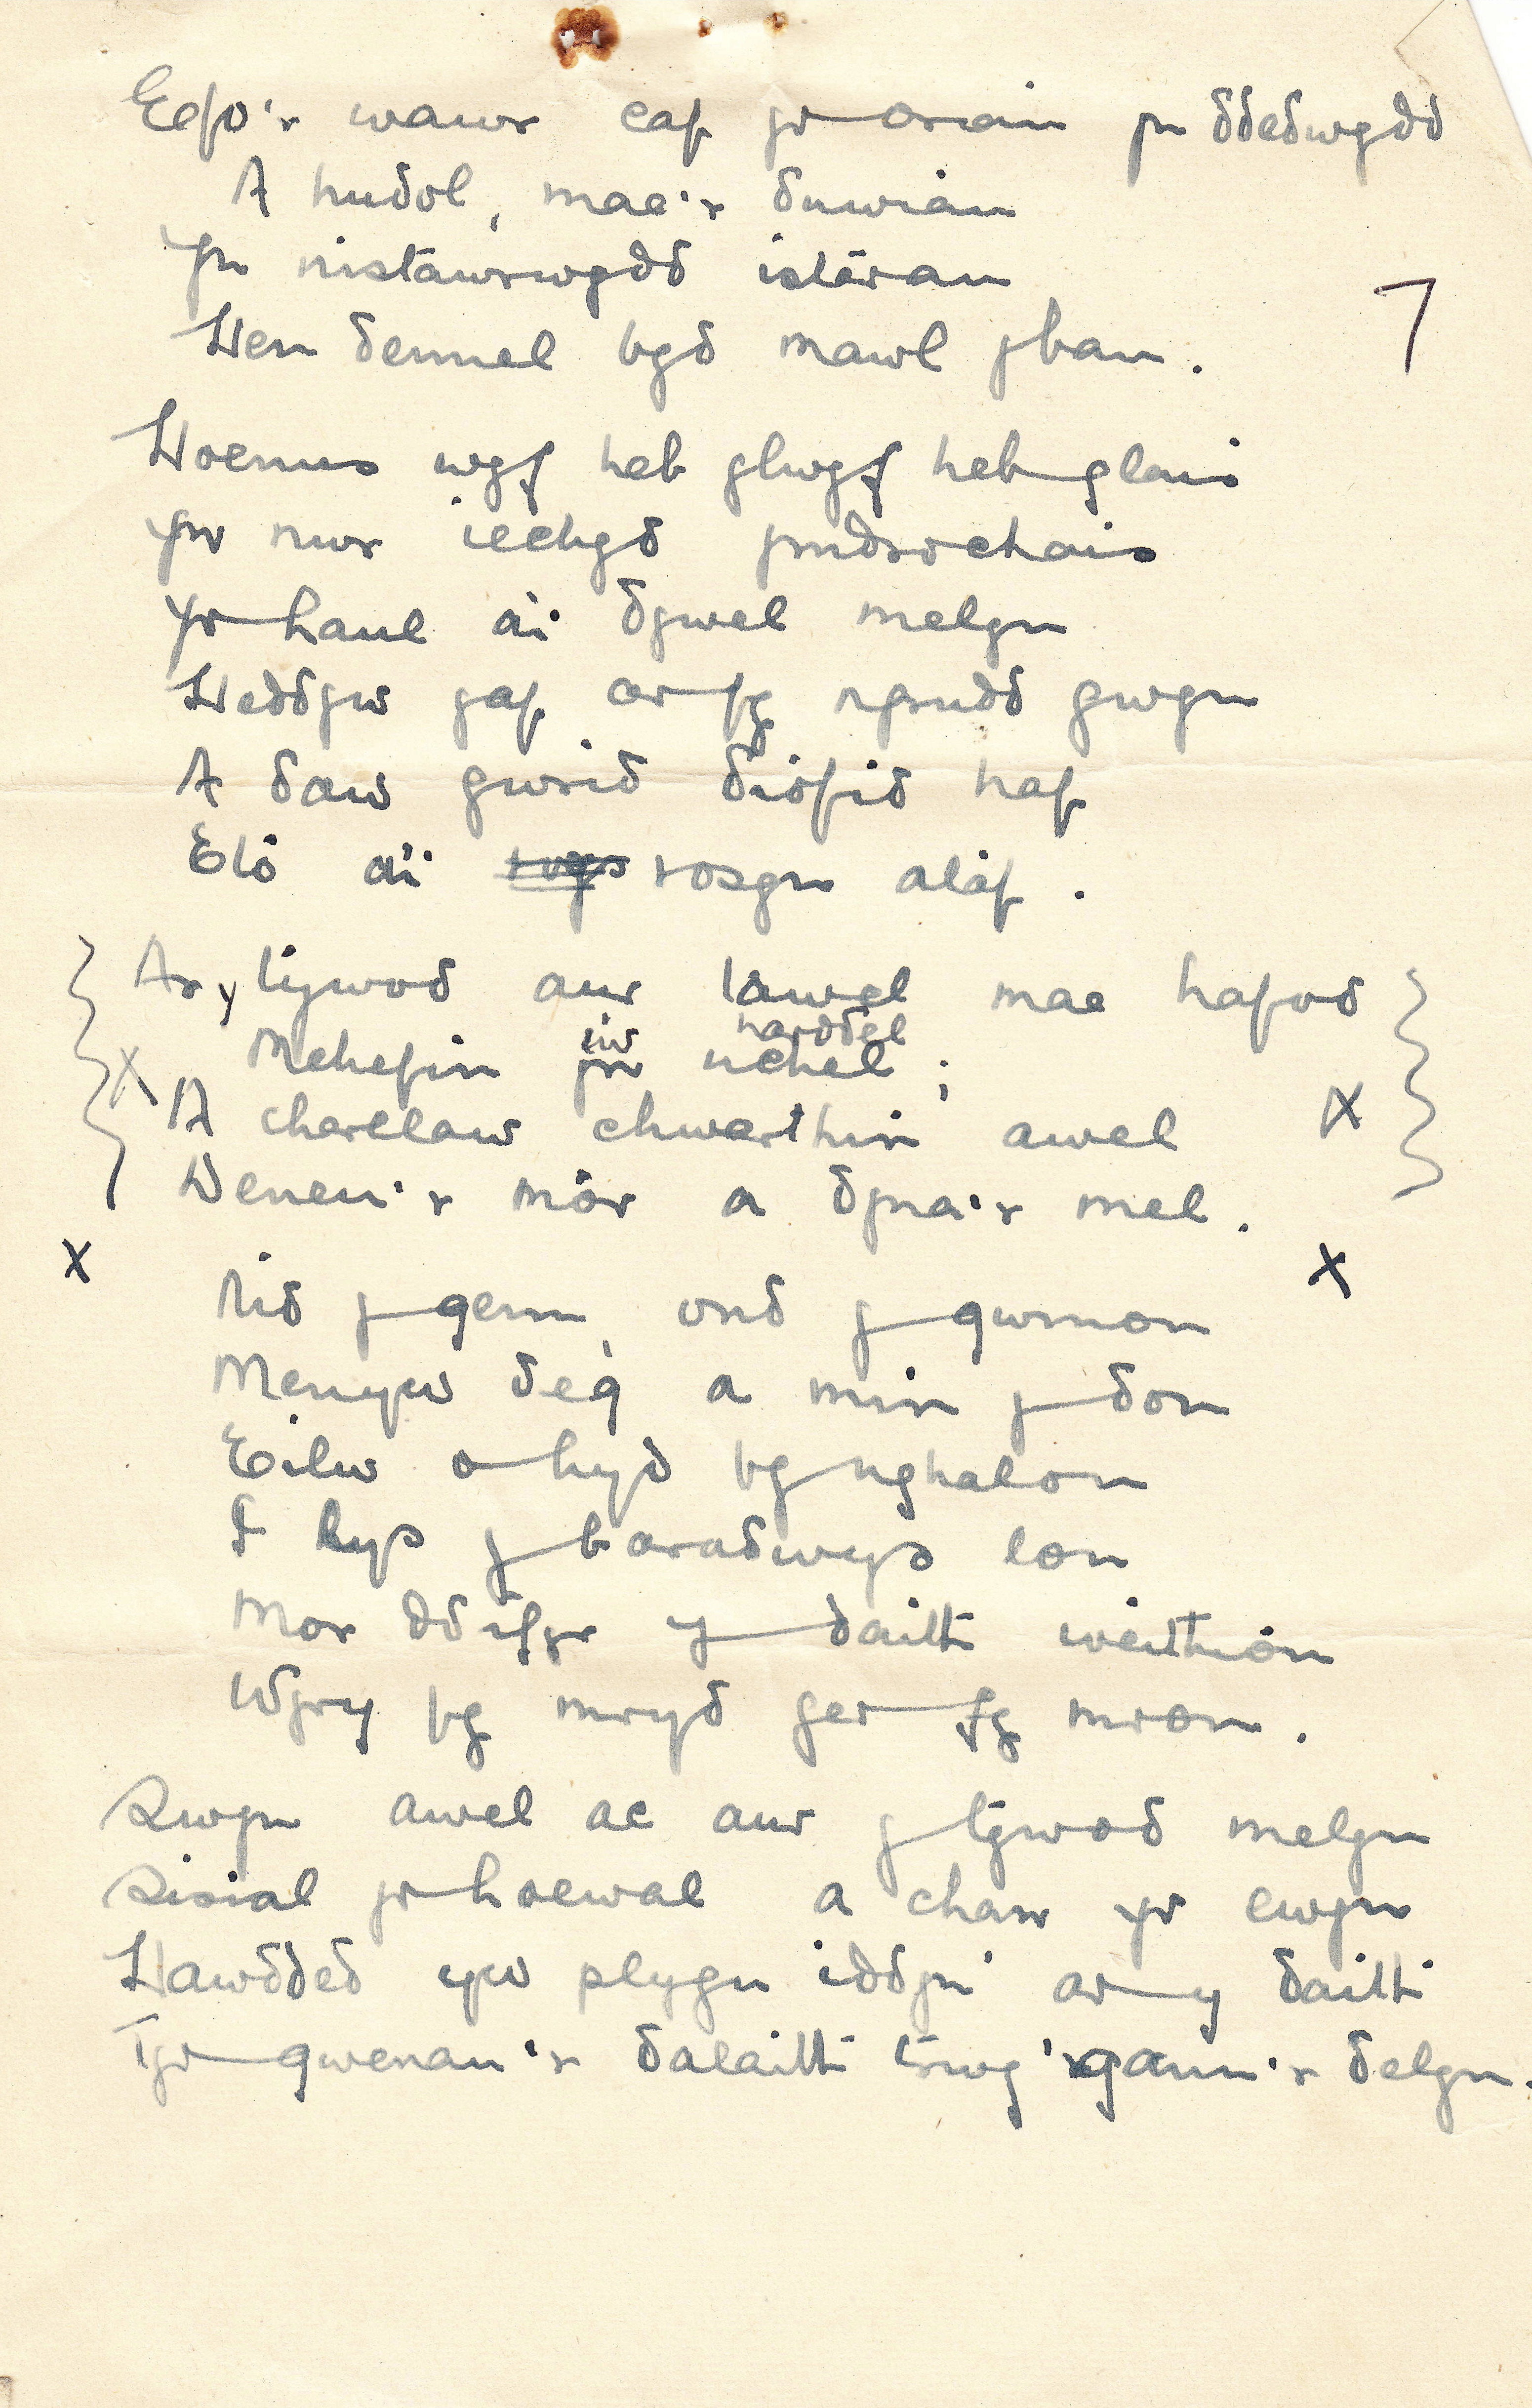 Efo'r wawr caf yr arian yn ddedwydd
A hudol, mae'r duwian
Yn nistawrwydd
Hen demel byd mawl y ban.
7
Hoenus wyf heb glwyf heb glais
Yn nwr iechyd ymdrochais
Yr haul a'i dywel melyn
Heddyw gaf ar fy ngrudd gwyn
A daw gwrid diofid haf
Eto a'i rosyn ataf.
Ar y tywod aur tawel mae hafod
iw harddel
X Mehefin yn uchel;
A cherllaw chwerthin awel X
Wenau'r môr a dyna'r mel.
X X
Nid y gem, ond y gwmon
Menyw deg a min y don
Eilw o hyd fy nghalon
I lys y baradwys lon
Mor ddifyr y daith weithion
Wyry fy mryd ger fy mron.
Swyn awel ac aur y tywod melyn
Sisial yr hoewal a chan yr ewyn
Hawdded yw plygu iddyn' ar y daith
Tyr gwenau'r dalaith trwy ganu'r delyn.